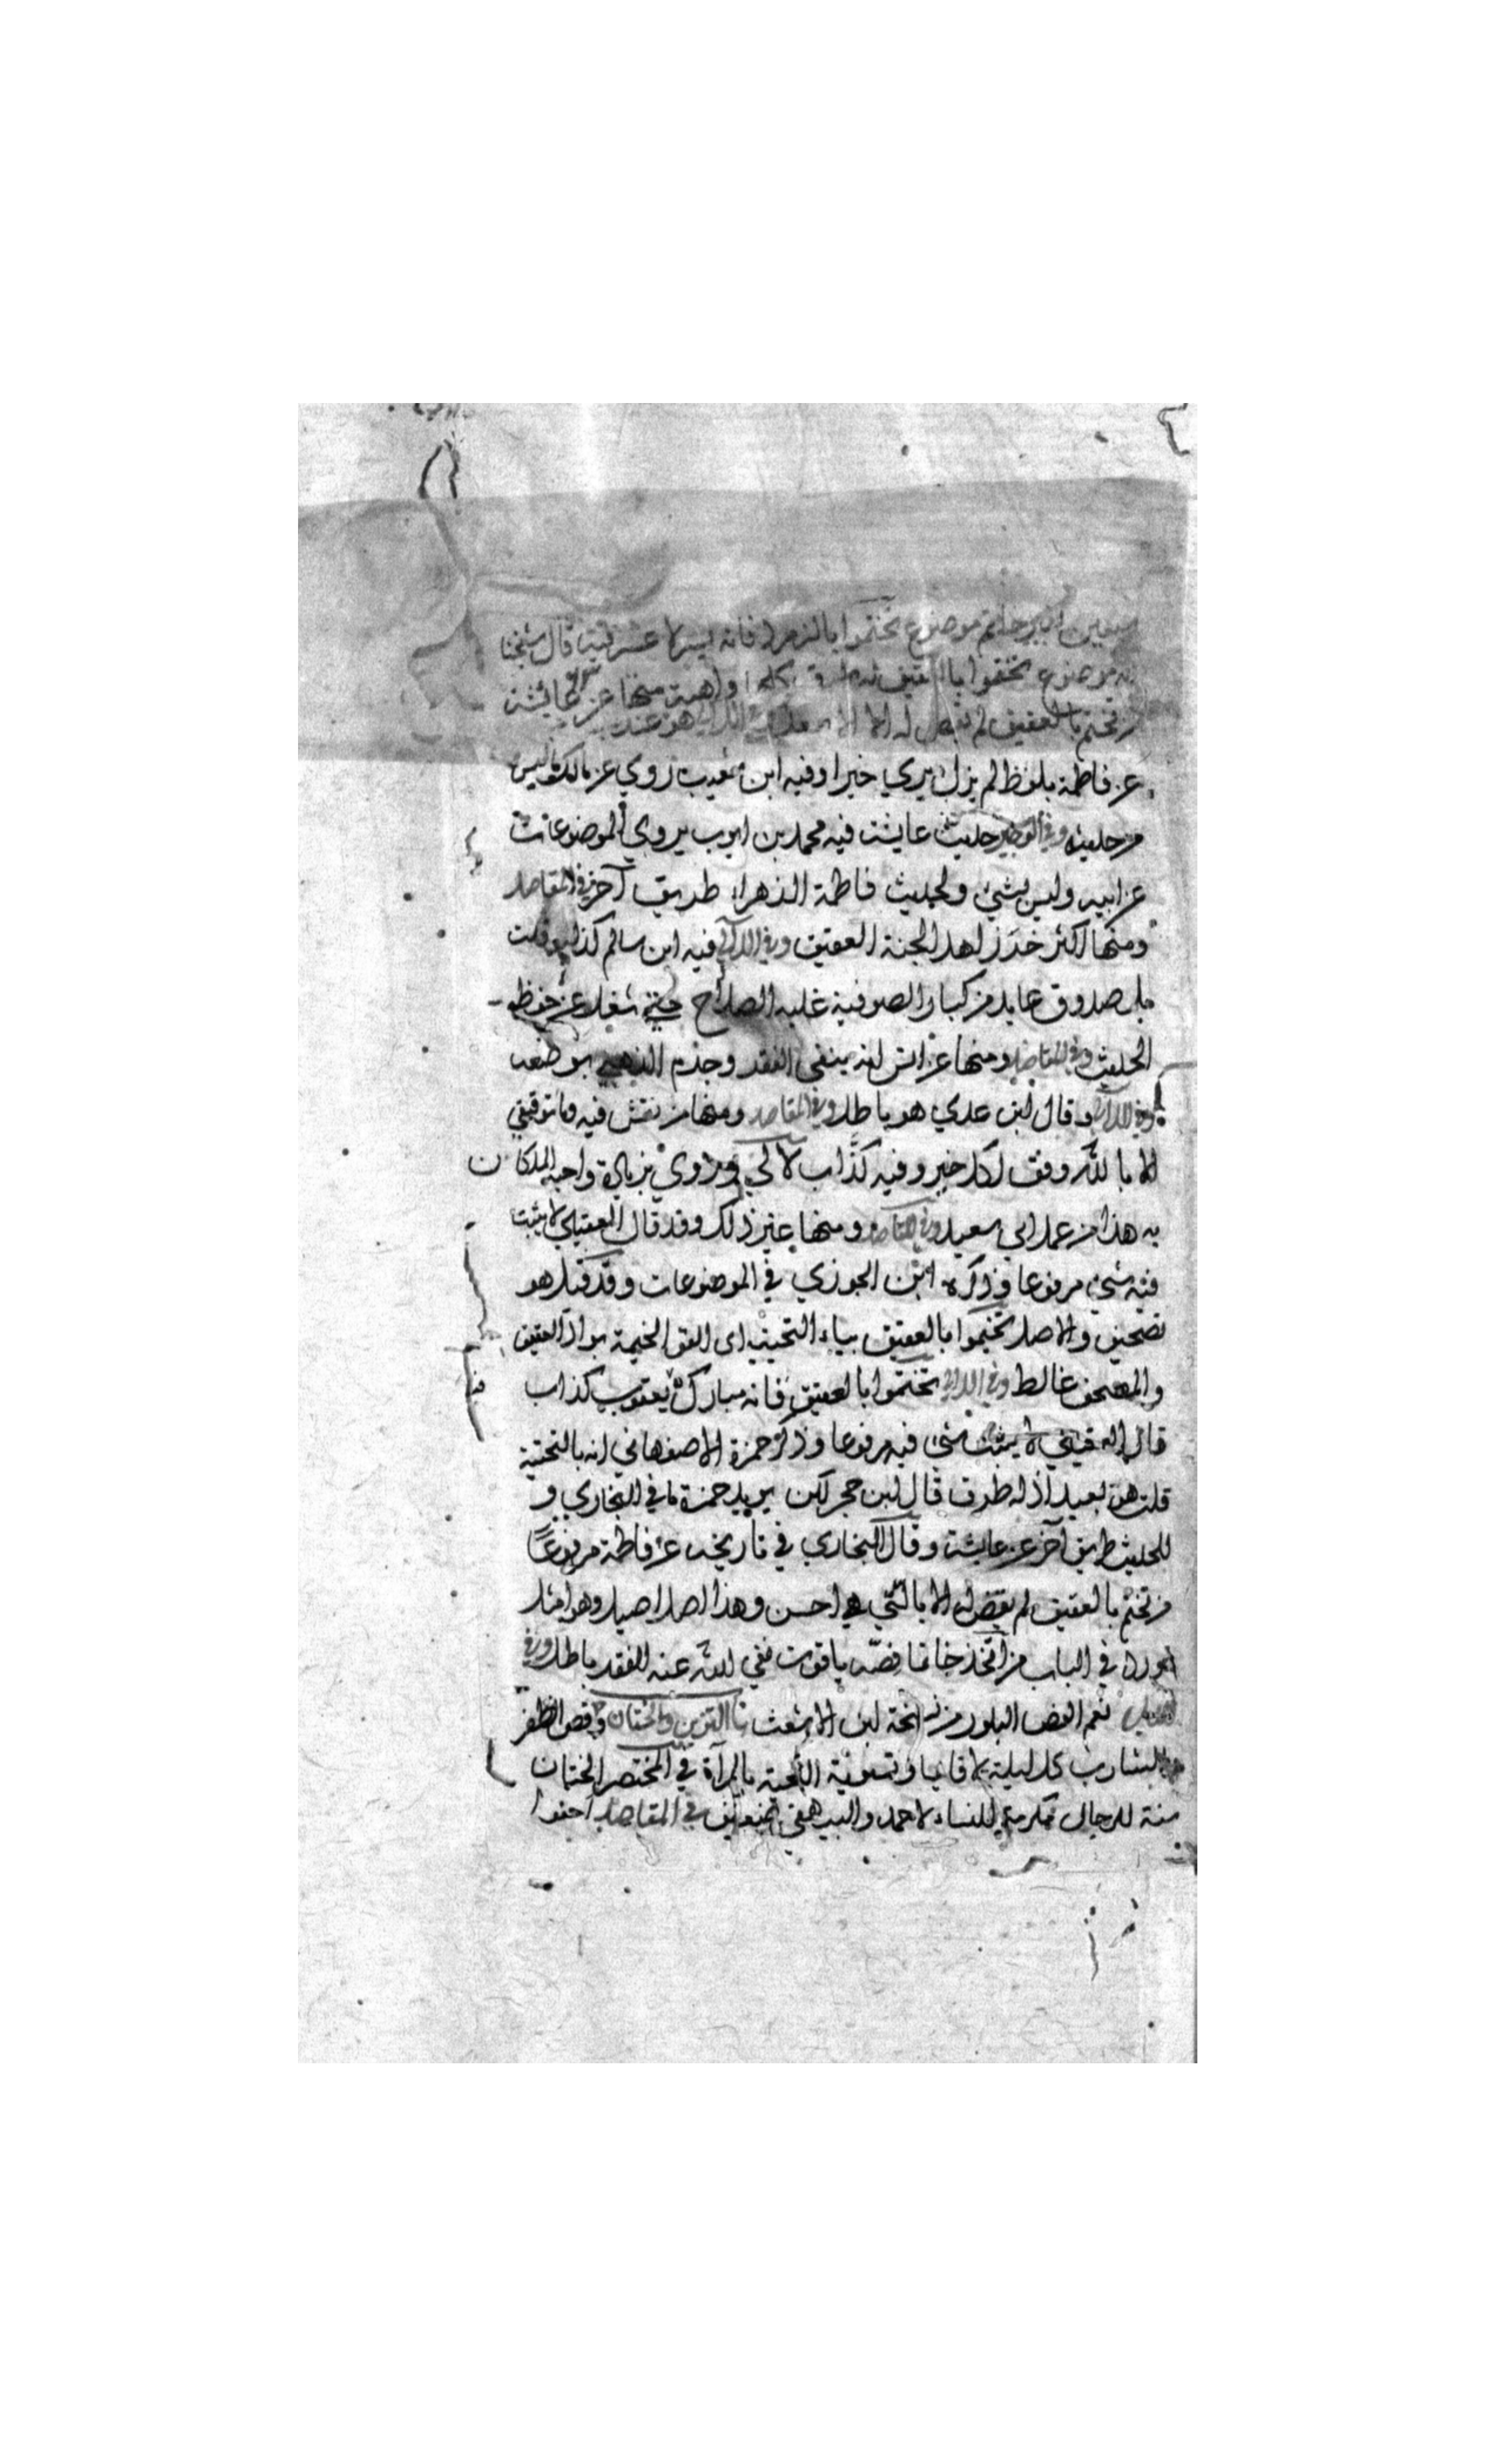 موضوع تختموا بالزمرد فانه يسر لا عسر فيه قال شيخنا
موضوع تختموا بالعقيق له طرق كلها واهية منها عن عايشة
من تختم بالعقيق لم يقض له الا
عن فاطمة بلفظ لم يزل يري خيرا وفيه ابن شعيب روي عن مالك ما ليس
من حديثه وفي الوجيز حديث عايشة فيه محمد بن ايوب يروي الموضوعات
عن ابيه وليس بشيء ولحديث فاطمة الزهراء طريق آخر في المقاصد
ومنها اكثر خرز اهل الجنة العقيق وفي اللآلي فيه ابن سالم كذاب قلت
بل صدوق عابد من كبار الصوفية غلبه الصلاح حتى شغل عن حفظ
الحديث وفي المقاصد ومنها عن انس انه ينفي الفقر وجزم الذهبي بوضعه
وفي اللآلي وقال ابن عدي هو باطل وفي المقاصد ومنها من نقش فيه وما توفيقي
الا بالله وفق لكل خير وفيه كذاب لآلي وروي بزيادة واحبه الملكان
به هذا من عمل ابي سعيد وفي المقاصد ومنها غير ذلك وقد قال العقيلي لا يثبت
فيه شيء مرفوعا وذكره ابن الجوزي في الموضوعات وقد قيل هو
تصحيف والاصل تخيموا بالعقيق بياء التحتية اى القوا الخيمة بواد العقيق
والمصحف غالط وفي اللالي تختموا بالعقيق فانه مبارك يعقوب كذاب
قال العقيلي لا يثبت شيء فيه مرفوعا وذكر حمزة الاصفهاني انه بالتحتية
قلت هو بعيد اذ له طرق قال ابن حجر لكن يريد حمزة ما في البخاري و
للحديث طريق آخر عن عايشة وقال البخاري في تاريخه عن فاطمة مرفوعًا
من تختم بالعقيق لم يقض له الا بالتي هي احسن وهذا اصل اصيل وهو امثل
ما ورد في الباب من اتخذ خاتما فصه ياقوت نفي الله عنه الفقر باطل وفي
نعم الفص البلور من نسخة ابن الاشعث باب التزين والختان وقص الظفر
والشارب كل ليلة قايما وتسوية اللحية بالمرآة في المختصر الختان
سنة للرجال مكرمة للنساء لاحمد والبيهقي ضعيف في المقاصد احفوا